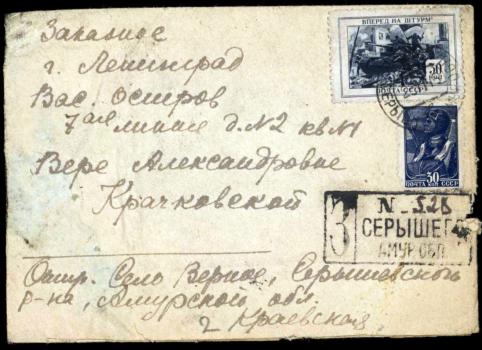 Заказное
г. Ленинград
Вас. Остров
7ая линия д.N2 кв.N1
Вере Александровне
Крачковской
Отпр. Село Верное, Серышевского
р-на, Амурской обл.
Краевская
ВПЕРЕД НА ШТУРМ!
30
ПОЧТА СССР
30
ПОЧТА СССР
З
N 528
СЕРЫШЕВО
АМУР ОБЛ